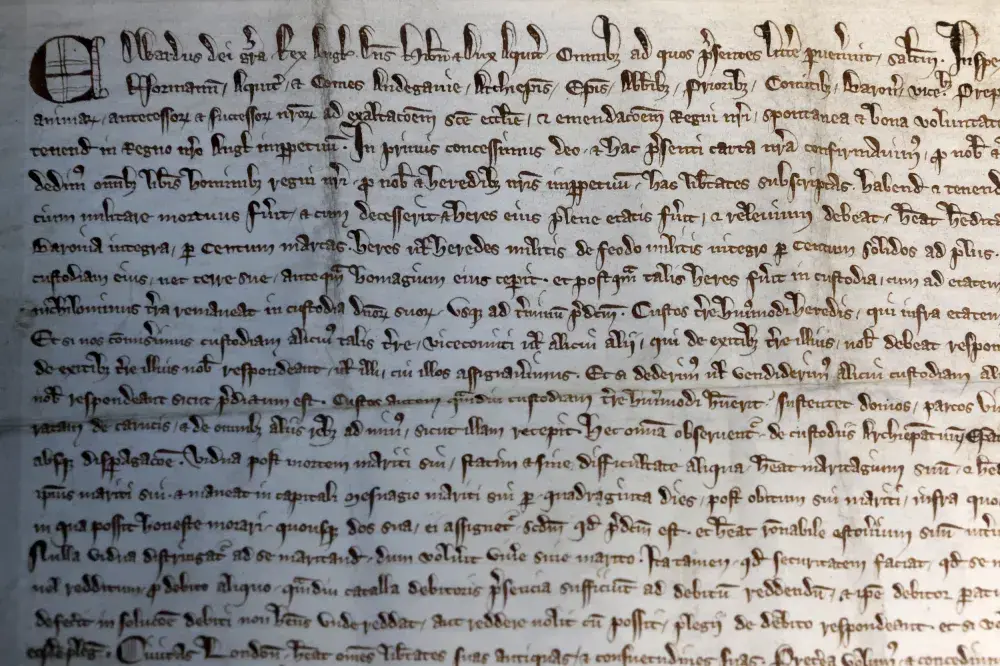 Edwardus dei gr̄a Rex Angl̄ Dn̄s Hib̄n ⁊ Dux Aquit̄ Omnibȝ ad quos p̄sentes litt̄e puen̄int, sal̄tm. Inspe
Normann̄, Aquit̄, ⁊ Comes Andegavie, Archiep̄is, Ep̄is, Abb̄ibȝ, Prioribȝ, Comitibȝ, Baron̄, vic̄
animarꝝ, antecessorꝝ ⁊ successorꝝ n̄rorꝝ ad exaltac̄oem sc̄e eccl̄ie, ⁊ emendac̄oem Regni n̄ri, spontanea ⁊ bona voluntat
tenend̄ in Regno n̄ro Angl̄ imppetuū. In primis concessimus deo, ⁊ hac p̄senti carta n̄ra confirmavim̄, p nob̄
dedim̄ om̄ibȝ lib̄is hominibȝ regni n̄ri, p nob̄ ⁊ heredibȝ n̄ris imppetuū, has lib̄tates subscriptas. habend̄ ⁊ tenend
cium militare mortuus fu̅it, ⁊ cum decesserit ⁊ heres eius plene etatis fu̅it, ⁊ relevium debeat, h̄eat hedit
Baronia integra, p Centum marcas. heres vel heredes militis de feodo militis integro p Centum solidos ad plus.
custodiam eius, nec terre sue, anteqm̄ homagium eius ceperit. et postqm̄ talis heres fu̅it in custodia, cum ad etatem
nichilominus t̄ra remaneat in custodia dn̄orꝝ suorꝝ, usqȝ ad t̄minū p̄dc̄m. Custos t̄re huiusmodi heredis, qui infra etatem
Et si nos com̄iserimus custodiam alicuius talis t̄re, vicecomiti vel alicui alii, qui de exitibȝ t̄re illius, nob̄ debeat respon
de exitibȝ t̄re illius nob̄ respondeant, vel illi, cui illos assignaverimus. Et si dederim̄ vel vendiderim̄ alicui custodiam
nob̄ respondeant sicut p̄dictum est. Custos autem qm̄diu custodiam t̄re huiusmodi h̄uerit, sustentet domos, parcos
ratam de carucis, ⁊ de omnibȝ aliis rebȝ ad min̄, sicut illam recepit. Hec om̄ia observent̄ de custodiis Archiepatuum
absqȝ dispagac̄oe. Vidua post mortem mariti sui, statim ⁊ sine difficultate aliqua, h̄eat maritagium suū,
ipsius mariti sui. ⁊ maneat in capitali mesuagio mariti sui p quadraginta dies, post obitum sui mariti, infra quo
in qua possit honeste morari, quousqȝ dos sua, ei assignet̄ scdm̄ qd̄ p̄dc̄m est. et h̄eat rōnabile estoverium suū
Nulla vidua distringat̄ ad se maritand̄, dum volu̅it vivere sine marito. Ita tamen, qd̄ securitatem faciat, qd̄ se
nec redditum, p debito aliquo, qm̄diu catalla debitoris p̄sencia sufficiūt ad debitū reddendū, ⁊ ip̄e debitor
defec̄it in soluc̄oe debiti non h̄ens unde reddat, aut reddere nolit cū possit, plegii de debito respondeant. et si
eosdē pleḡ. Civitas London̄, h̄eat om̄es lib̄tates suas antiquas, ⁊ consuetudines suas. Pret̄ea volum̄ ⁊